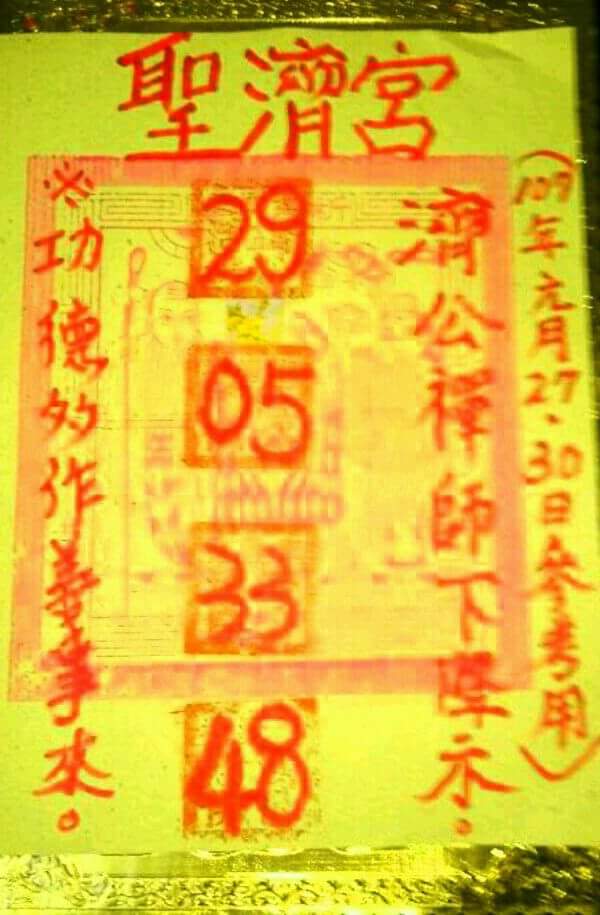 聖濟宮
(109年元月27、30日參考用)
濟公禪師下降示。
29
05
33
48
※功德多作善事來。